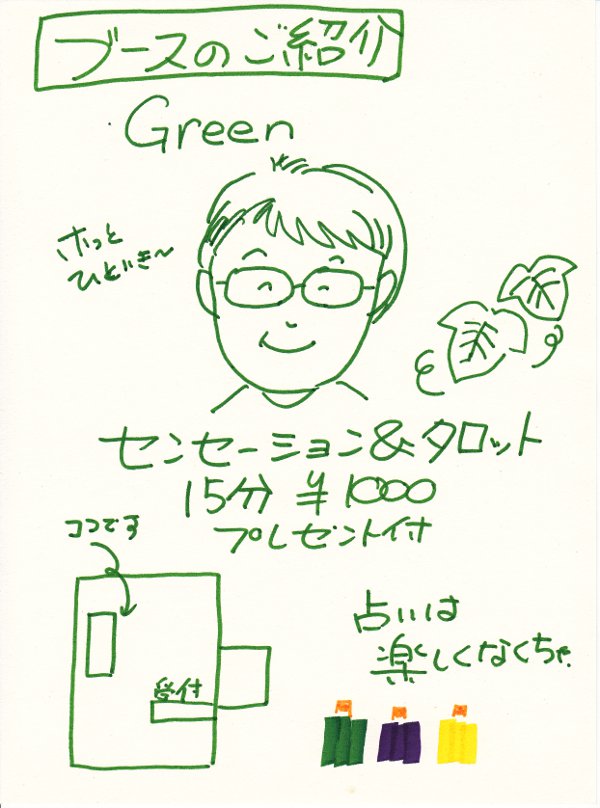 ブースのご紹介
Green
ホっと
ひといき〜
センセーション&タロット
15分 ¥1000
プレゼント付
ココです
受付
占いは
楽しくなくちゃ